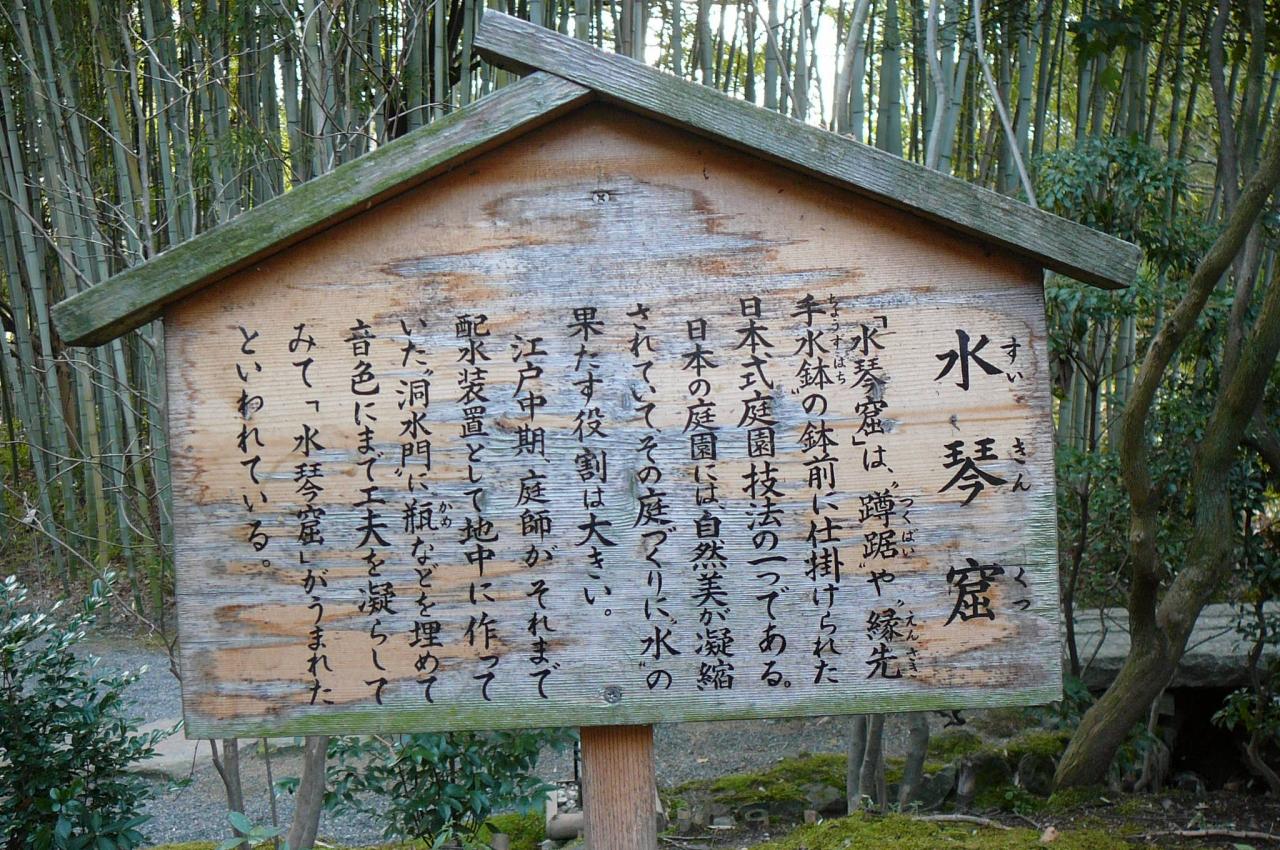 水琴窟
すいきんくつ
「水琴窟」は、〝蹲踞〟や〝縁先
つくばい えんさき
手水鉢〟の鉢前に仕掛けられた
ちょうずばち
日本式庭園技法の一つである。
日本の庭園には、自然美が凝縮
されていてその庭づくりに〝水〟の
果たす役割は大きい。
江戸中期、庭師がそれまで
配水装置として地中に作って
いた〝洞水門〟に瓶などを埋めて
かめ
音色にまで工夫を凝らして
みて「水琴窟」がうまれた
といわれている。